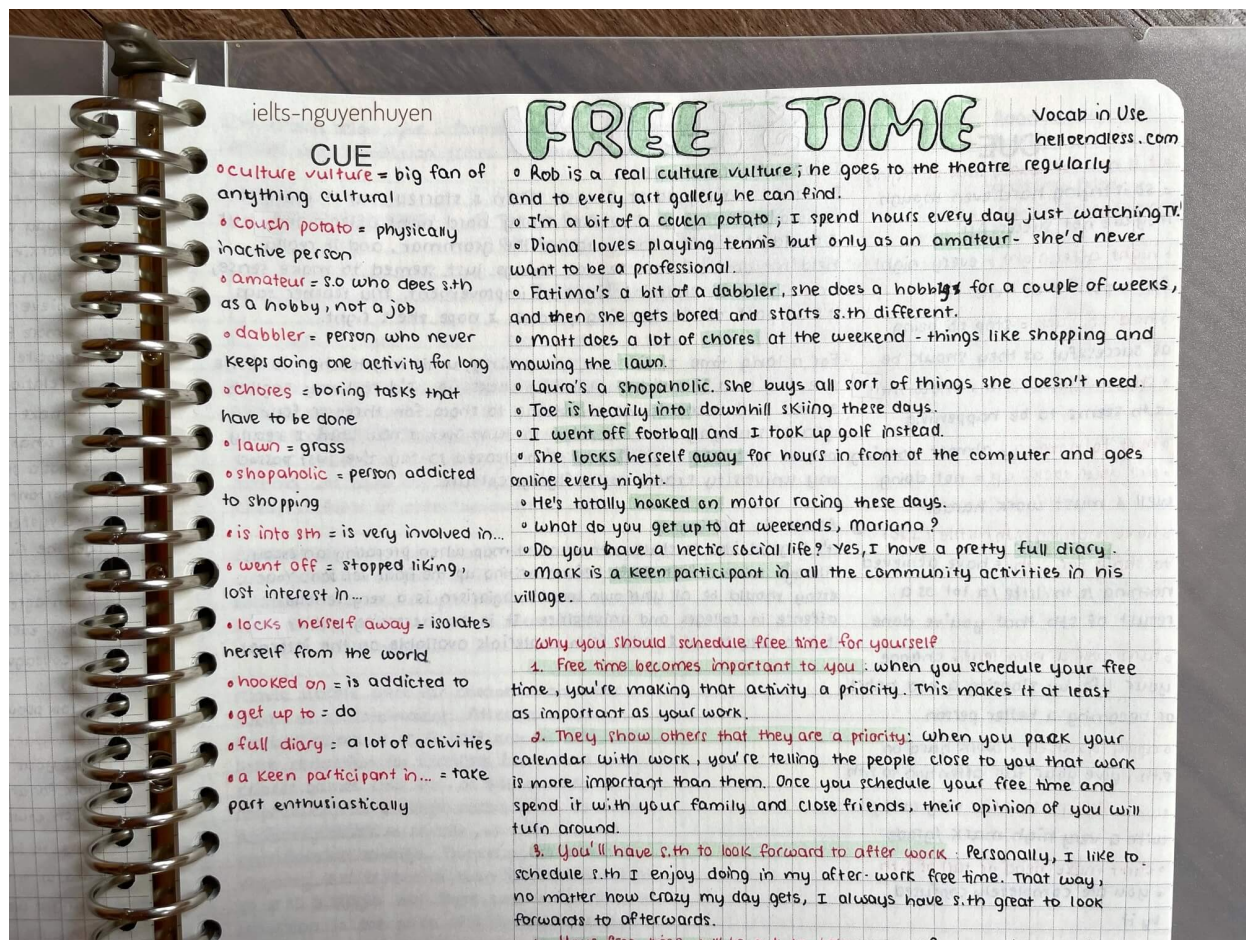 ielts-nguyenhuyen
FREE TIME
Vocab in Use
helloendless.com
CUE
culture vulture = big fan of
anything cultural
couch potato = physically
inactive person
amateur = s.o who does s.th
as a hobby, not a job
dabbler = person who never
keeps doing one activity for long
chores = boring tasks that
have to be done
lawn = grass
shopaholic = person addicted
to shopping
is into sth = is very involved in...
went off = stopped liking,
lost interest in...
locks herself away = isolates
herself from the world
hooked on = is addicted to
get up to = do
full diary = a lot of activities
a keen participant in... = take
part enthusiastically
Rob is a real culture vulture; he goes to the theatre regularly
and to every art gallery he can find.
I'm a bit of a couch potato; I spend hours every day just watching TV.
Diana loves playing tennis but only as an amateur - she'd never
want to be a professional.
Fatima's a bit of a dabbler, she does a hobby for a couple of weeks,
and then she gets bored and starts s.th different.
Matt does a lot of chores at the weekend - things like shopping and
mowing the lawn.
Laura's a shopaholic. She buys all sort of things she doesn't need.
Joe is heavily into downhill skiing these days.
I went off football and I took up golf instead.
She locks herself away for hours in front of the computer and goes
online every night.
He's totally hooked on motor racing these days.
What do you get up to at weekends, Mariana?
Do you have a hectic social life? Yes, I have a pretty full diary.
Mark is a keen participant in all the community activities in his
village.
Why you should schedule free time for yourself
1. Free time becomes important to you: when you schedule your free
time, you're making that activity a priority. This makes it at least
as important as your work.
2. They show others that they are a priority: when you pack your
calendar with work, you're telling the people close to you that work
is more important than them. Once you schedule your free time and
spend it with your family and close friends, their opinion of you will
turn around.
3. You'll have s.th to look forward to after work: Personally, I like to
schedule s.th I enjoy doing in my after-work free time. That way,
no matter how crazy my day gets, I always have s.th great to look
forwards to afterwards.